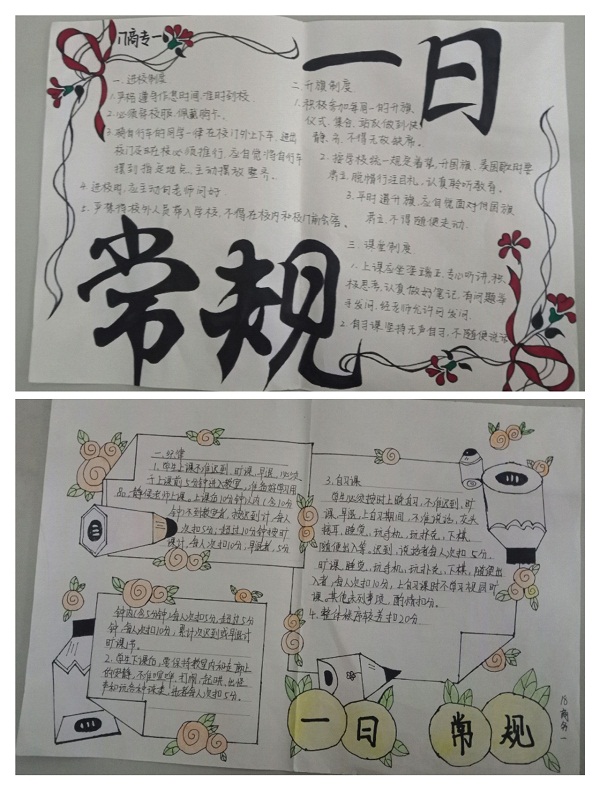 门商专一
一日
常规
一、进校制度
1.严格遵守作息时间,准时到校.
2.必须穿校服,佩戴胸卡.
3.骑自行车的同学一律在校门外上下车,进出
校门及在校必须推行,应自觉将自行车
摆到指定地点,主动摆放整齐。
4.进校时,应主动向老师问好.
5.严禁将校外人员带入学校,不得在校内和校门前会客。
二、升旗制度
1.积极参加每周一的升旗
仪式,集合、站队做到快、
静、齐,不得无故缺席。
2.按学校统一规定着装,升国旗、奏国歌时要
肃立,脱帽行注目礼,认真聆听教育。
3.平时遇升旗,应自觉面对国旗
肃立,不得随便走动.
三、课堂制度
1.上课应坐姿端正,专心听讲,积
极思考,认真做好笔记,有问题举
手发问,经老师允许可发问.
2.自习课坚持无声自习,不随便说话
一.纪律
1.学生上课不准迟到、旷课、早退,必须
于上课前5分钟进入教室,准备好学习用
品,静候老师上课。上课后10分钟以内(含10分
钟)不到教室者,按迟到计,每人
次扣5分;超过10分钟按旷
课计,每人次扣10分;早退者,5分
钟内(含5分钟)每人次扣5分,超过5分
钟,每人次扣10分,累计3次迟到或早退计
旷课1节.
2.学生下课后,要保持教室内和走廊上
的安静,不准喧哗、打闹、起哄、出怪
声和玩各种球类,违者每人次扣5分.
3.自习课
学生必须按时上晚自习,不准迟到、旷
课、早退,上自习期间,不准说话、交头
接耳、睡觉、玩手机、玩扑克、下棋、
随便出入等,迟到、说话者每人次扣5分,
旷课、睡觉、玩手机、玩扑克、下棋、随便出
入者,每人次扣10分,上自习课时不学习视同旷
课。其他未列事项,酌情扣分。
4.整体秩序较差扣20分
一日常规